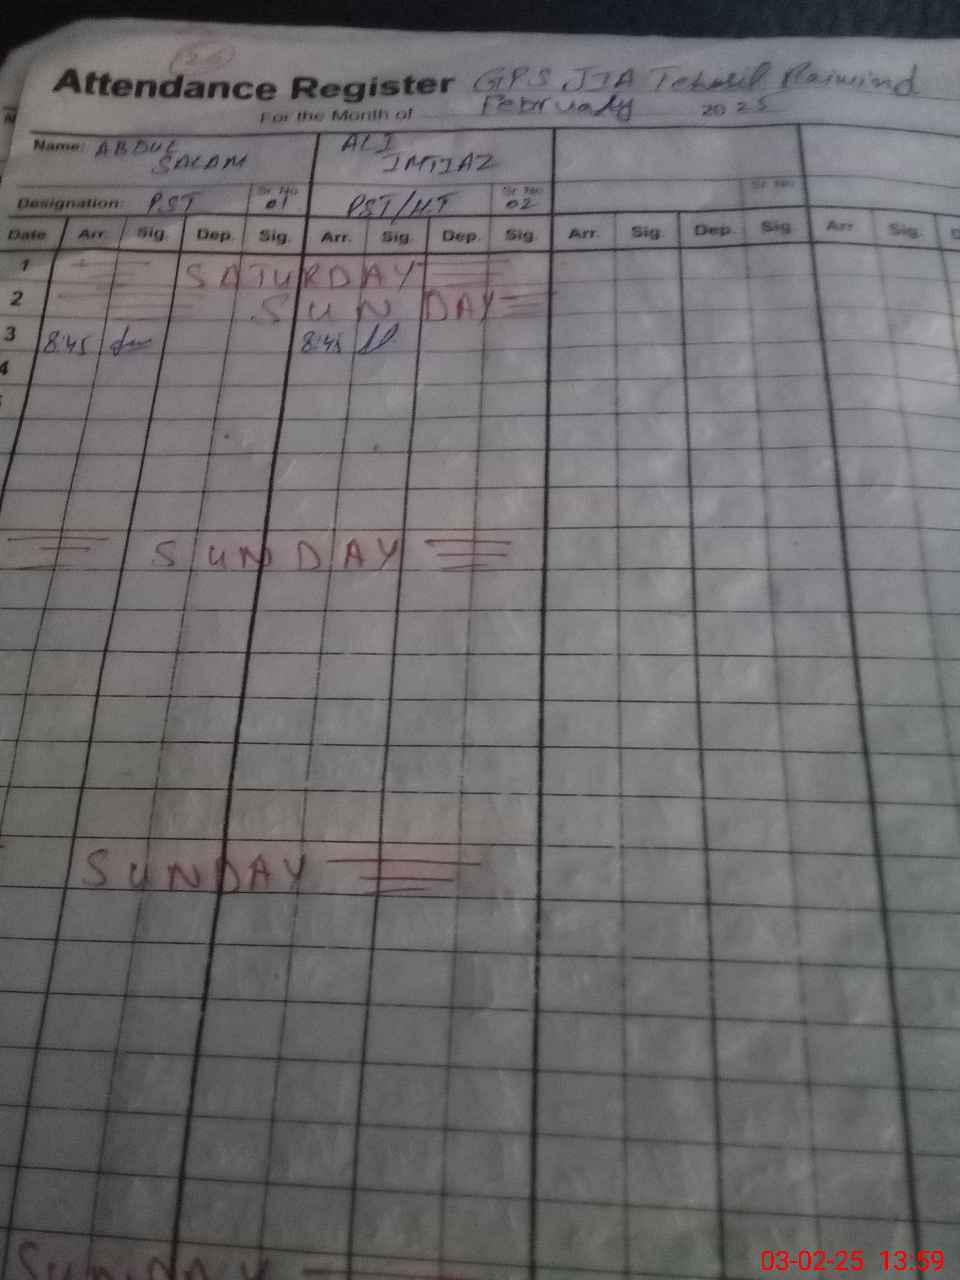 26
Attendance Register GPS JIA Tehsil Raiwind
For the Month of February 2025
Name: ABDUL SALAM ALI IMTIAZ
Designation: PST Sr. No 01 PST/H.T Sr. No 02 Sr. No
Date Arr. Sig. Dep. Sig. Arr. Sig. Dep. Sig. Arr. Sig. Dep. Sig. Arr Sig.
1 SATURDAY
2 SUNDAY
3 8:45 8:45
4
SUNDAY
SUNDAY
SUNDAY
03-02-25 13:59